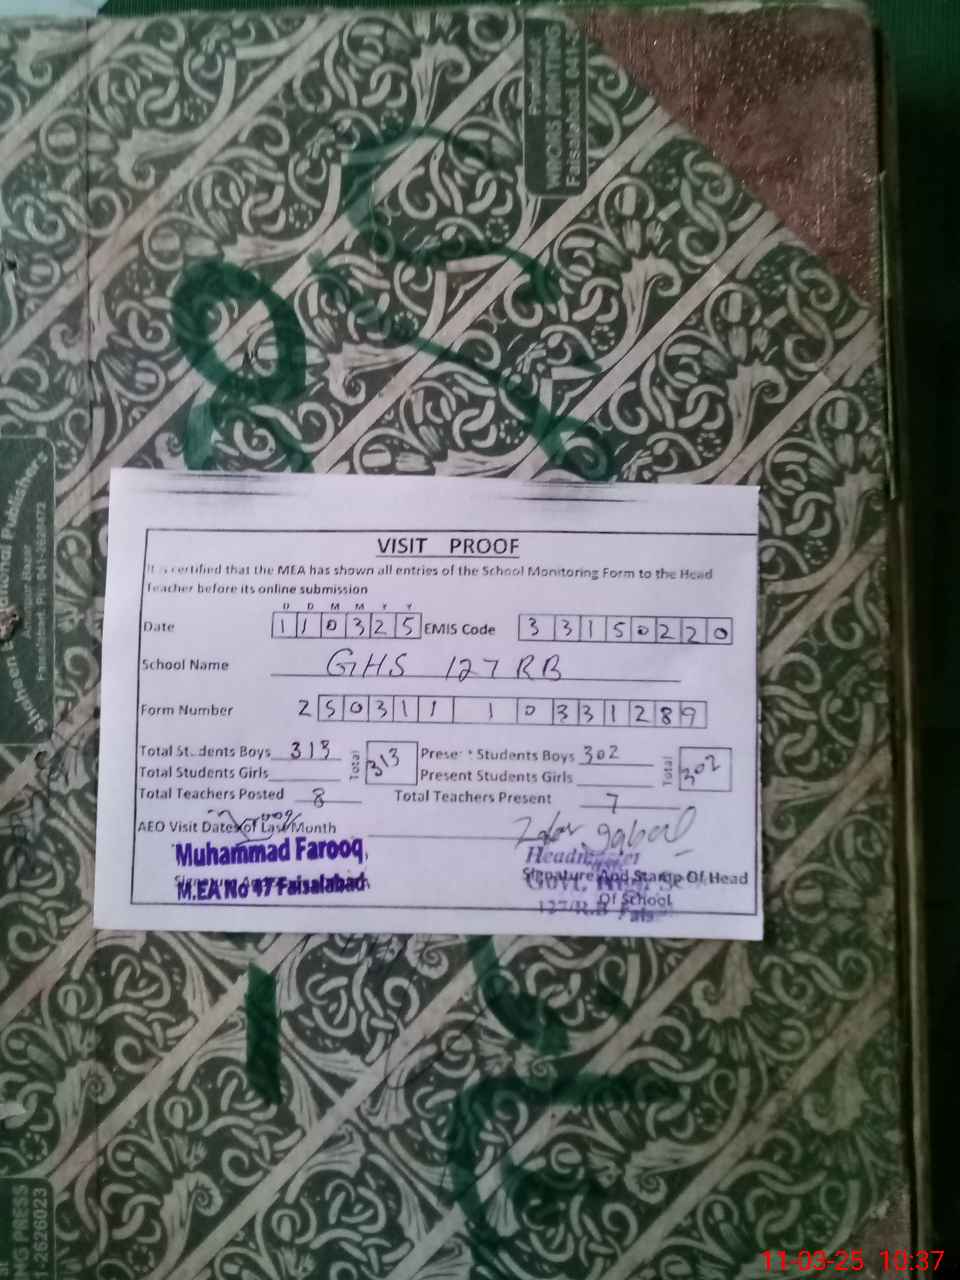 Printed at
WINORS PRINTING
Faisalabad 041-2
Shaheen Educational Publishers
Bazar
Faisalabad. Ph: 041-2626423
VISIT PROOF
It is certified that the MEA has shown all entries of the School Monitoring Form to the Head
Teacher before its online submission
D D M M Y Y
Date 1 1 0 3 2 5 EMIS Code 3 3 1 5 0 2 2 0
School Name GHS 127 RB
Form Number 2 5 0 3 1 1 1 0 3 3 1 2 8 9
Total Students Boys 313 Total 313 Present Students Boys 302 Total 302
Total Students Girls Present Students Girls
Total Teachers Posted 8 Total Teachers Present 7
AEO Visit Dates of Last Month
Muhammad Farooq
M.EA No 47 Faisalabad
Zafar Iqbal
Headmaster
Signature And Stamp Of Head
Of School
127/R.B Fais
MG PRESS
-2626023
11-03-25 10:37